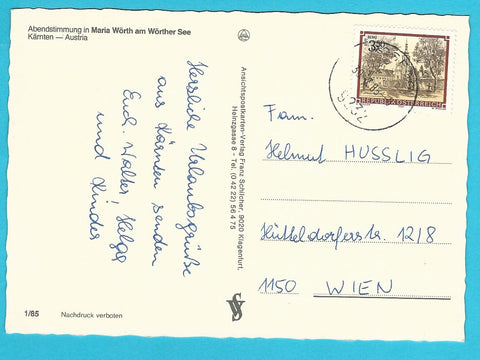 Abendstimmung in Maria Wörth am Wörther See
Kärnten — Austria
Herzliche Urlaubsgrüße
aus Kärnten senden
Euch. Walter, Helga
und Kinder
Ansichtspostkarten-Verlag Franz Schilcher, 9020 Klagenfurt,
Heinzgasse 8 - Tel. (0 42 22) 56 4 75
REPUBLIK ÖSTERREICH
9232
Fam.
Helmut HUSSLIG
Hütteldorferstr. 12/8
1150 WIEN
1/85 Nachdruck verboten